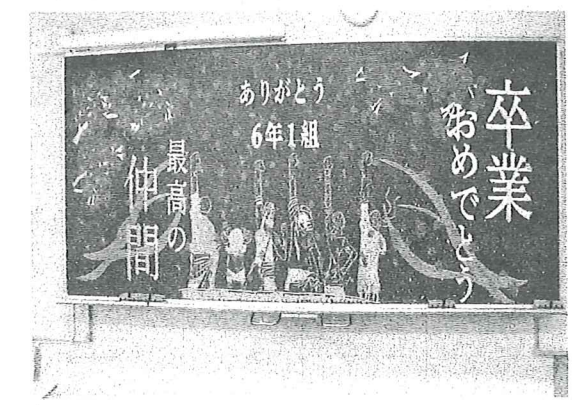 卒業
おめでとう
ありがとう
6年1組
最高の
仲間